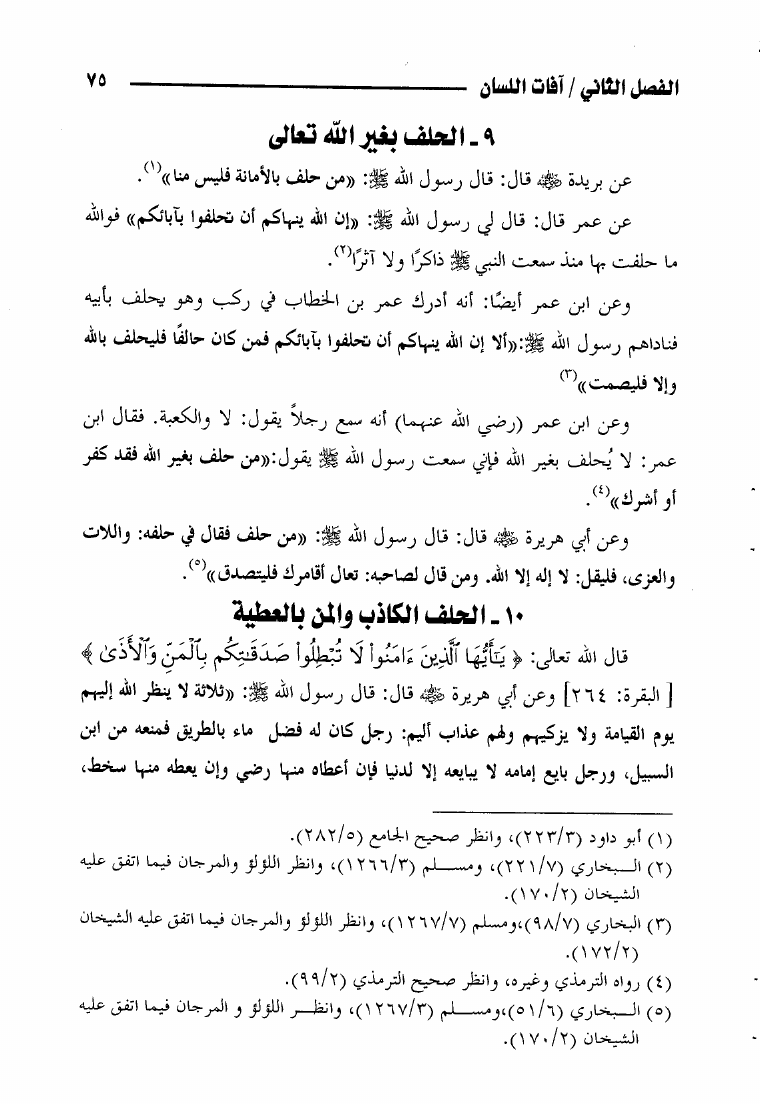 الفصل الثاني / آفات اللسان ٧٥
٩ ـ الحلف بغير الله تعالى
عن بريدة ﷺ قال: قال رسول الله ﷺ: «من حلف بالأمانة فليس منا»(١).
عن عمر قال: قال لي رسول الله ﷺ: «إن الله ينهاكم أن تحلفوا بآبائكم» فوالله
ما حلفت بها منذ سمعت النبي ﷺ ذاكرًا ولا آثرًا(٢).
وعن ابن عمر أيضًا: أنه أدرك عمر بن الخطاب في ركب وهو يحلف بأبيه
فناداهم رسول الله ﷺ:«ألا إن الله ينهاكم أن تحلفوا بآبائكم فمن كان حالفًا فليحلف بالله
وإلا فليصمت»(٣)
وعن ابن عمر (رضي الله عنهما) أنه سمع رجلاً يقول: لا والكعبة. فقال ابن
عمر: لا يُحلف بغير الله فإني سمعت رسول الله ﷺ يقول:«من حلف بغير الله فقد كفر
أو أشرك»(٤).
وعن أبي هريرة ﷺ قال: قال رسول الله ﷺ: «من حلف فقال في حلفه: واللات
والعزى، فليقل: لا إله إلا الله. ومن قال لصاحبه: تعال أقامرك فليتصدق»(٥).
١٠ ـ الحلف الكاذب والمن بالعطية
قال الله تعالى: ﴿ يَـٰٓأَيُّهَا ٱلَّذِينَ ءَامَنُوا۟ لَا تُبْطِلُوا۟ صَدَقَـٰتِكُم بِٱلْمَنِّ وَٱلْأَذَىٰ ﴾
[ البقرة: ٢٦٤] وعن أبي هريرة ﷺ قال: قال رسول الله ﷺ: «ثلاثة لا ينظر الله إليهم
يوم القيامة ولا يزكيهم ولهم عذاب أليم: رجل كان له فضل ماء بالطريق فمنعه من ابن
السبيل، ورجل بايع إمامه لا يبايعه إلا لدنيا فإن أعطاه منها رضي وإن يعطه منها سخط،
(١) أبو داود (٢٢٣/٣)، وانظر صحيح الجامع (٢٨٢/٥).
(٢) الـبخاري (٢٢١/٧)، ومسـلم (١٢٦٦/٣)، وانظر اللؤلؤ والمرجان فيما اتفق عليه
الشيخان (١٧٠/٢).
(٣) البخاري (٩٨/٧)،ومسلم (١٢٦٧/٧)، وانظر اللؤلؤ والمرجان فيما اتفق عليه الشيخان
(١٧٢/٢).
(٤) رواه الترمذي وغيره، وانظر صحيح الترمذي (٩٩/٢).
(٥) الـبخاري (٥١/٦)،ومسـلم (١٢٦٧/٣)، وانظـر اللؤلؤ و المرجان فيما اتفق عليه
الشيخان (١٧٠/٢).